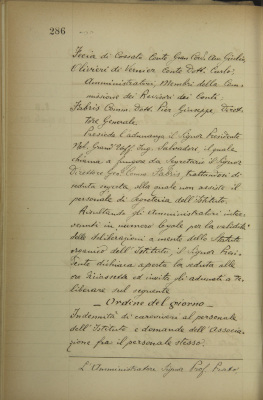 286
Fecia di Cossato Conte Gran Cord. Avv. Carlo,
Olivieri di Vernier Conte Dott. Carlo,
Amministratori, Membri della Com-
missione dei Revisori dei Conti
Fabris Comm. Dott. Pier Giuseppe, Diret-
tore Generale.
Presiede l'adunanza il Signor Presidente
Nob. Grand'Uff. Ing. Salvadori, il quale
chiama a fungere da Segretario il Signor
Direttore Gen. Comm. Fabris, trattandosi di
seduta segreta alla quale non assiste il
personale di Segreteria dell'Istituto.
Risultando gli Amministratori inter-
venuti in numero legale per la validità
delle deliberazioni a mente dello Statuto
organico dell'Istituto, il Signor Presi-
dente dichiara aperta la seduta alle
ore ed invita gli adunati a de-
liberare sul seguente
Ordine del giorno
Indennità di caroviveri al personale
dell'Istituto e domande dell'Associa-
zione fra il personale stesso.
L'Amministratore Signor Prof. Prato